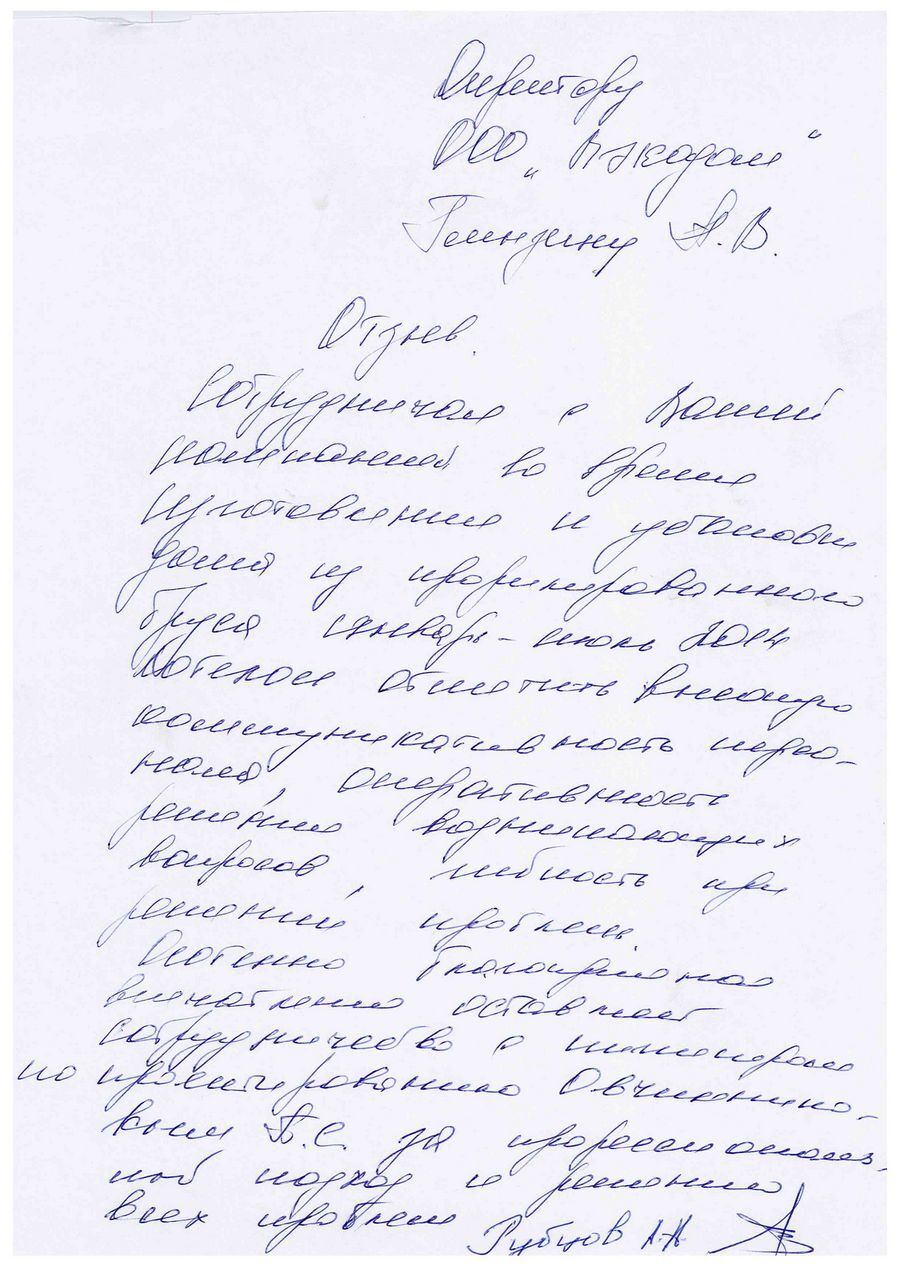 Директору
ООО „Экодом"
А.В.
Отзыв.
Сотрудничал с Вашей
компанией во время
изготовления и установки
дома из профилированного
бруса январь-июль 2014
Хотелось отметить высокую
коммуникативность персо-
нала, оперативность
решения возникающих
вопросов, гибкость при
решений проблем.
Особенно благоприятное
впечатление оставляет
сотрудничество с инженером
по проектированию Овчинни-
ковым А.С. за профессиональ-
ной подход и решению
всех проблем
Рубцов А.А